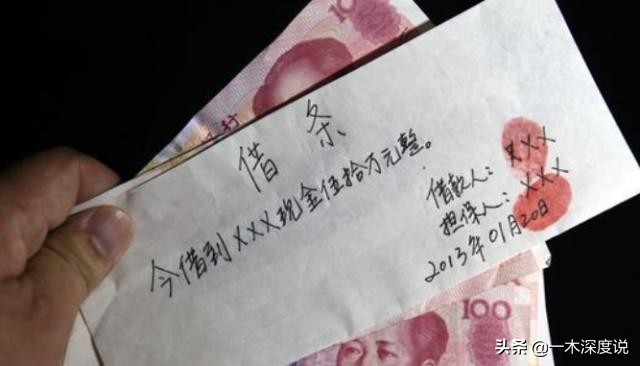 借条
今借到XXX现金伍拾万元整。
借款人：XXX
担保人：XXX
2013年01月20日
100
头条 @一木深度说